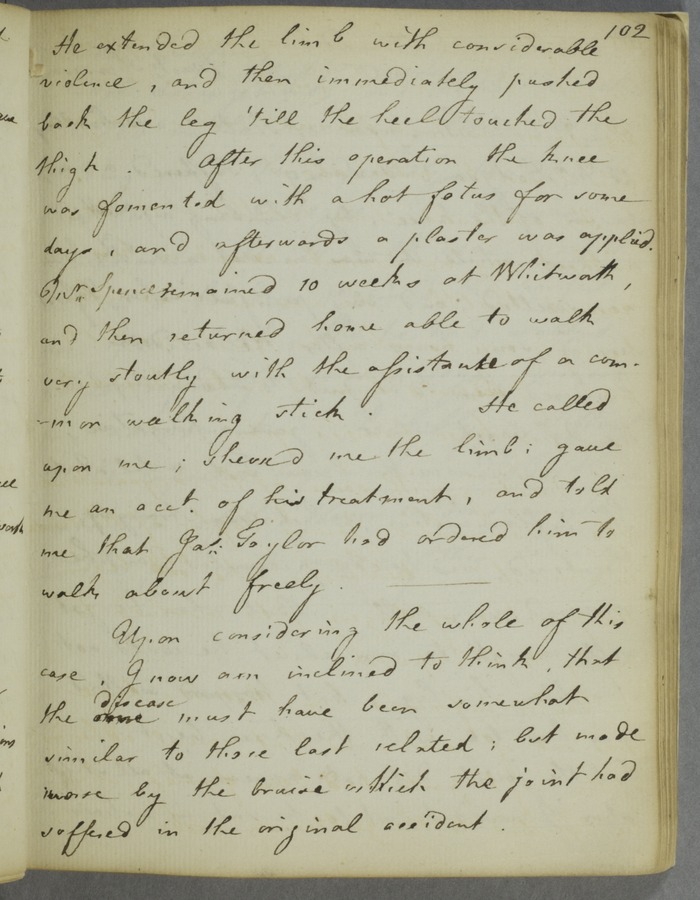 102
He extended the limb with considerable
violence, and then immediately pushed
back the leg 'till the heel touched the
thigh. After this operation the knee
was fomented with a hot fotus for some
days, and afterwards a plaster was applied.
Mr. Spence remained 10 weeks at Whitworth,
and then returned home able to walk
very stoutly with the assistance of a com-
-mon walking stick. He called
upon me; shewed me the limb; gave
me an acct. of his treatment, and told
me that Jas: Taylor had ordered him to
walk about freely.
Upon considering the whole of this
case, I now am inclined to think, that
the disease must have been somewhat
similar to those last related; but made
worse by the bruise which the joint had
suffered in the original accident.